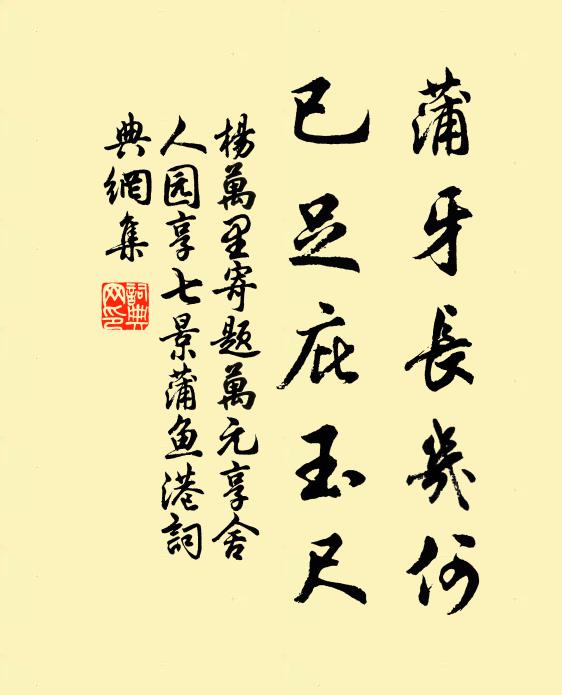 蒲牙長幾何
已足庇玉尺
楊萬里寄題萬元享舍
人园享七景蒲鱼港詞
典網集
詞典網印